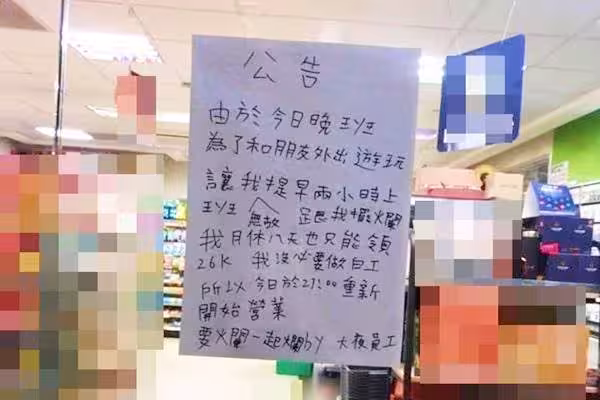 公告
由於今日晚班
為了和朋友外出遊玩
讓我提早兩小時上
班 無故 跟我擺爛
我月休八天也只能領
26K 我沒必要做白工
所以今日於21:00重新
開始營業
要爛一起爛by 大夜員工